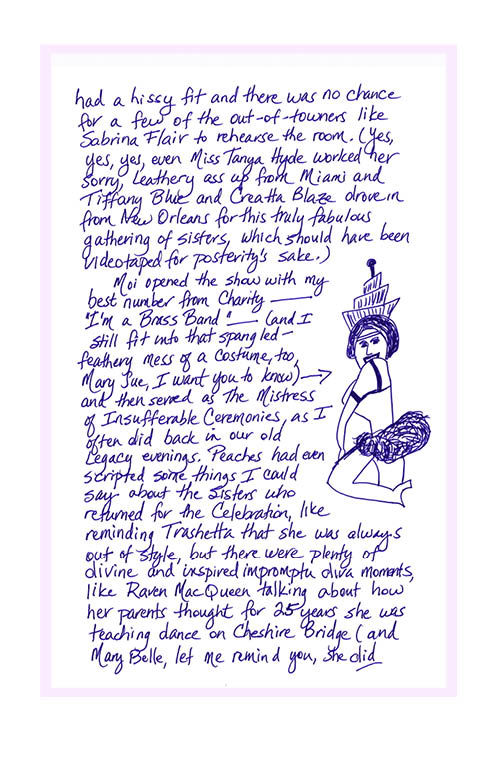 had a hissy fit and there was no chance
for a few of the out-of-towners like
Sabrina Flair to rehearse the room. (Yes,
yes, yes, even Miss Tanya Hyde worked her
sorry, leathery ass up from Miami and
Tiffany Blue and Creatta Blaze drove in
from New Orleans for this truly fabulous
gathering of sisters, which should have been
videotaped for posterity's sake.)
Moi opened the show with my
best number from Charity —
"I'm a Brass Band" — (and I
still fit into that spangled-
feathery mess of a costume, too,
Mary Sue, I want you to know) →
and then served as the Mistress
of Insufferable Ceremonies, as I
often did back in our old
Legacy evenings. Peaches had even
scripted some things I could
say about the Sisters who
returned for the Celebration, like
reminding Trashetta that she was always
out of style, but there were plenty of
divine and inspired impromptu diva moments,
like Raven MacQueen talking about how
her parents thought for 25 years she was
teaching dance on Cheshire Bridge (and
Mary Belle, let me remind you, she did